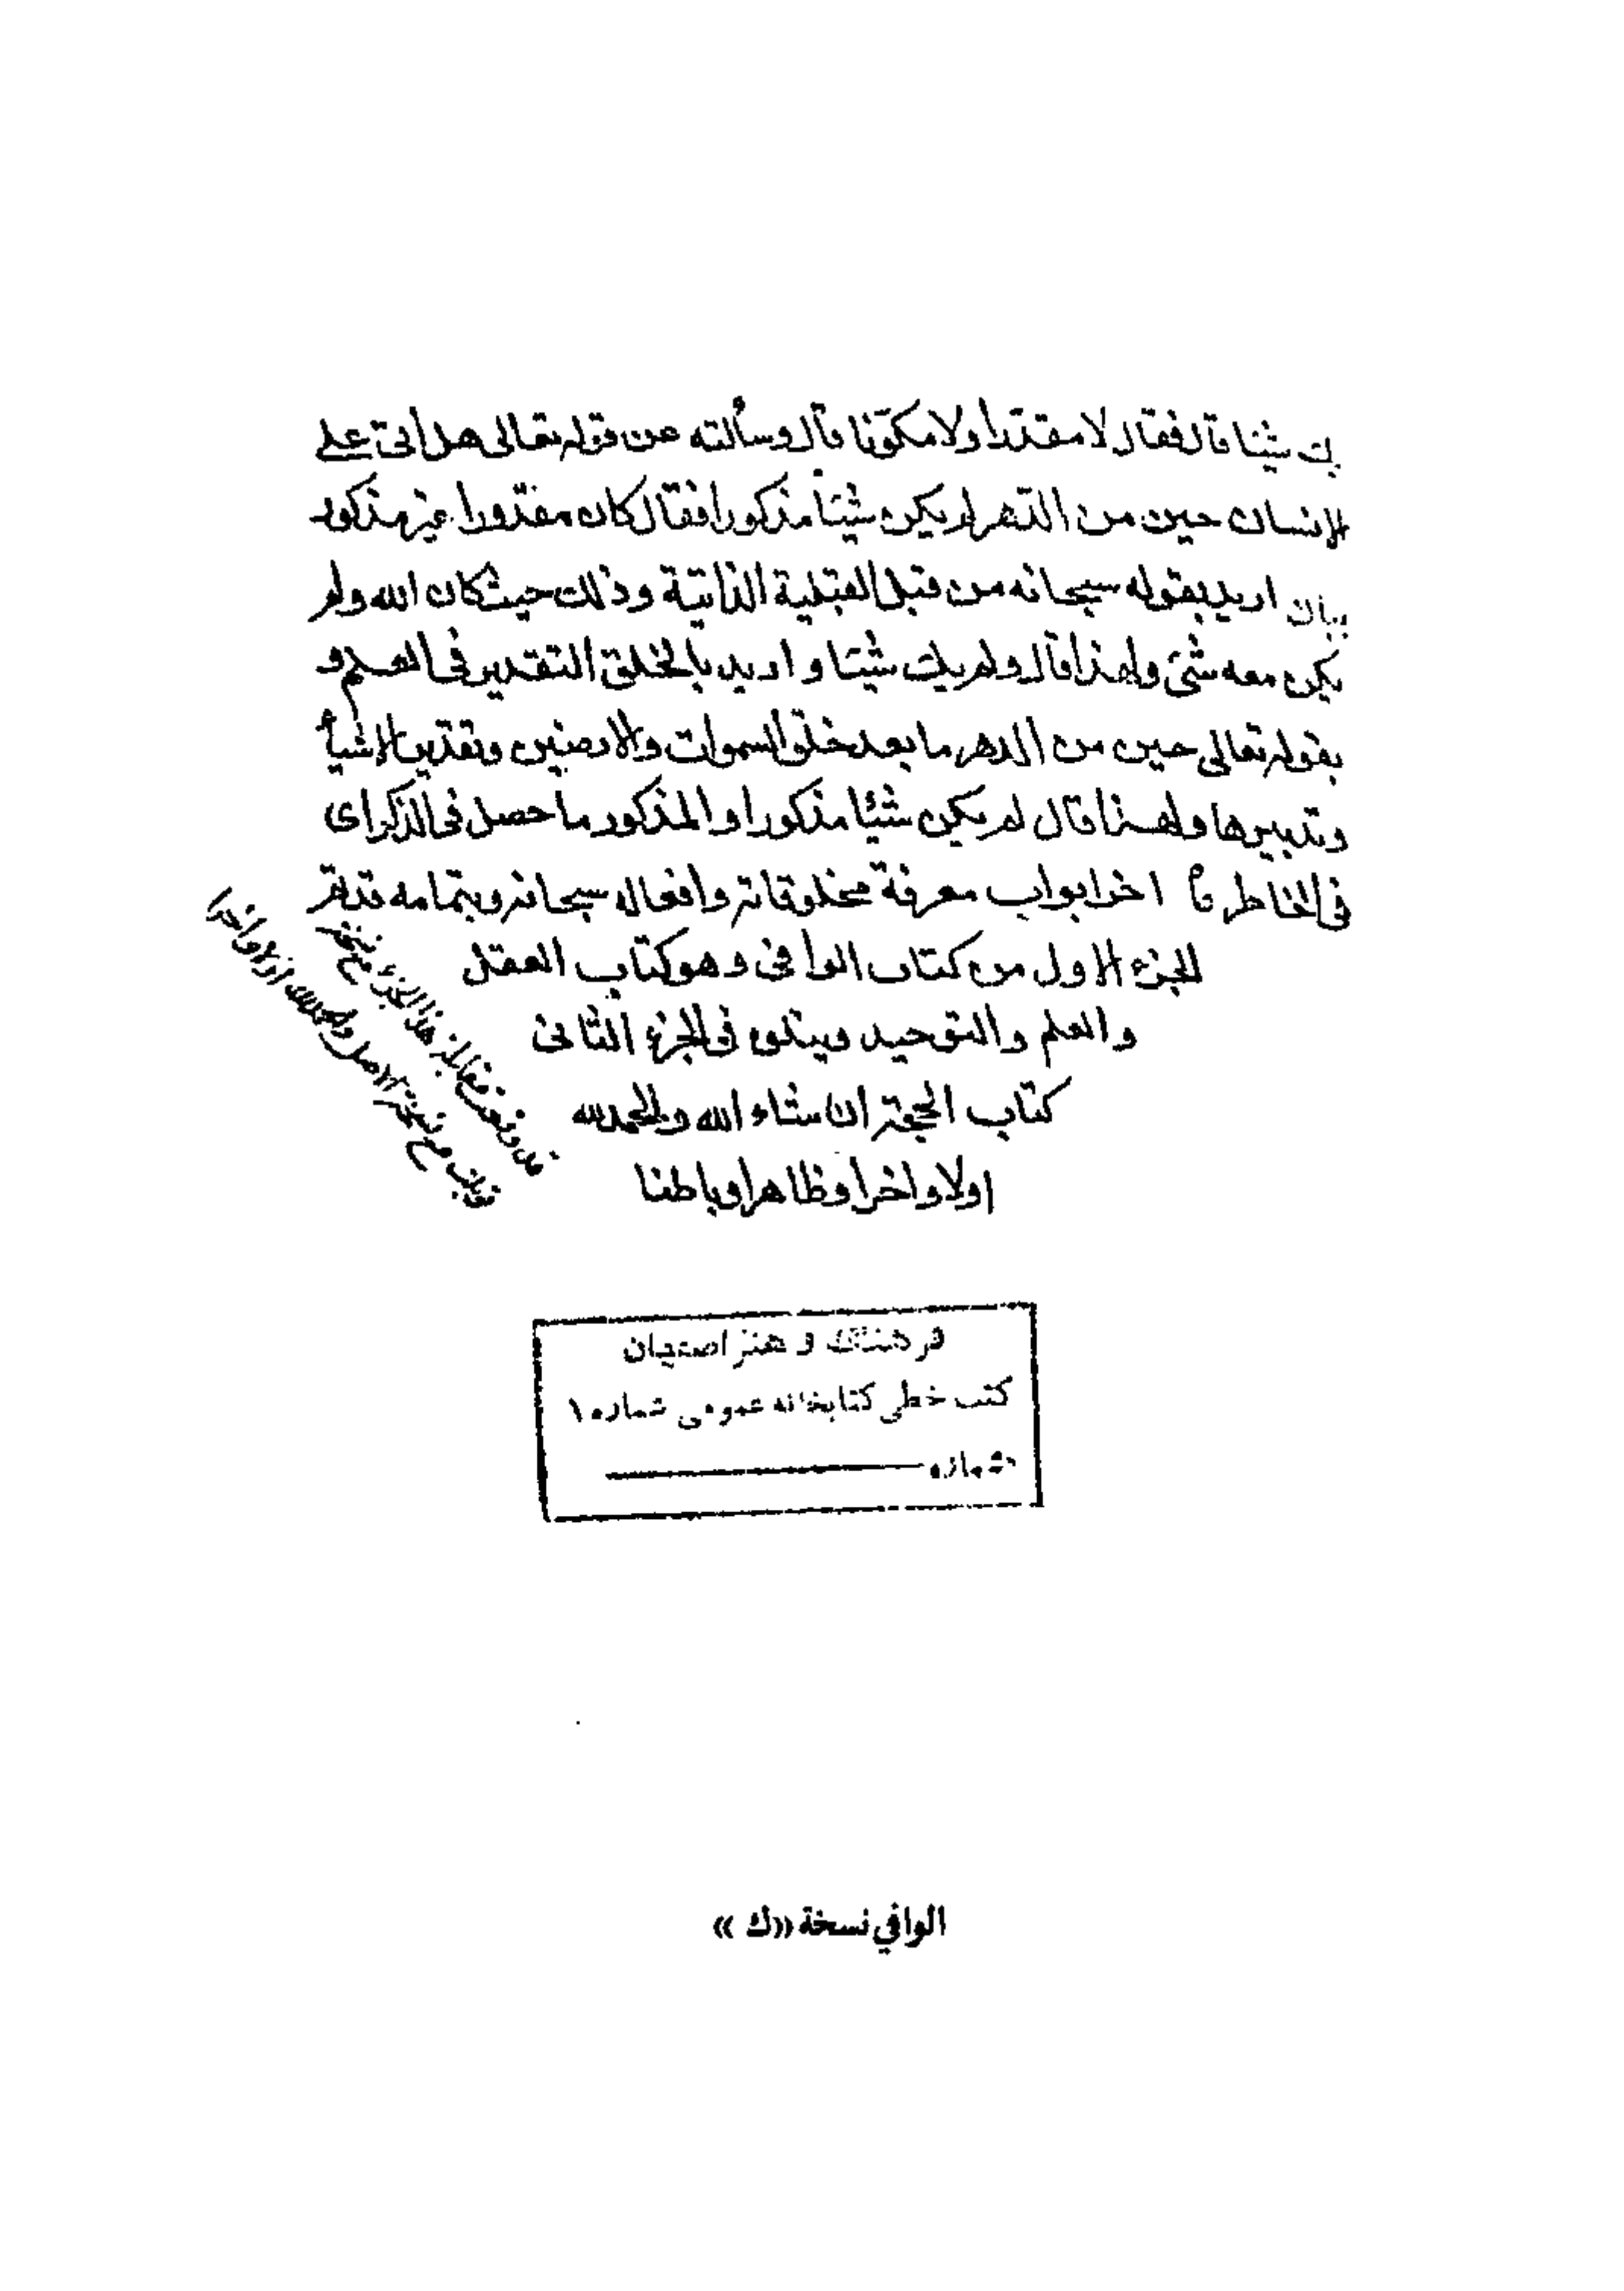 يك شيئا قال فقال لا مقدّرا ولا مكوّنا قال وسألته عن قوله تعالى هل اتى على
الانسان حين من الدّهر لم يكن شيئا مذكورا فقال كان مقدّورا غير مذكور
بيان اريد بقوله سبحانه من قبل القبلية الذاتية وذلك حيث كان الله ولم
يكن معه شئ ولهذا قال ولم يك شيئا واريد بالخلق التقدير في العلم و
بقوله تعالى حين من الدهر ما بعد خلق السموات والارضين وتقدير الاشيأ
وتدبيرها ولهذا قال لم يكن شيئا مذكورا والمذكور ما حصل في الذكر اى
في الخاطر اخر ابواب معرفة مخلوقاته وافعاله سبحانه وبتمامه قد تم
الجزء الاول من كتاب الوافى وهو كتاب العقل
والعلم والتوحيد ويتلوه في الجزء الثانى
كتاب الحجة ان شاء الله والحمد لله
اولا واخرا وظاهرا وباطنا
مقابلة هذا الجزء
نسخة الاصل والحمد لله اولا واخرا
فرهنگ و هنر اصفهان
كتب خطى كتابخانه عمومى شماره ۱
شماره
الوافي نسخة «ك»